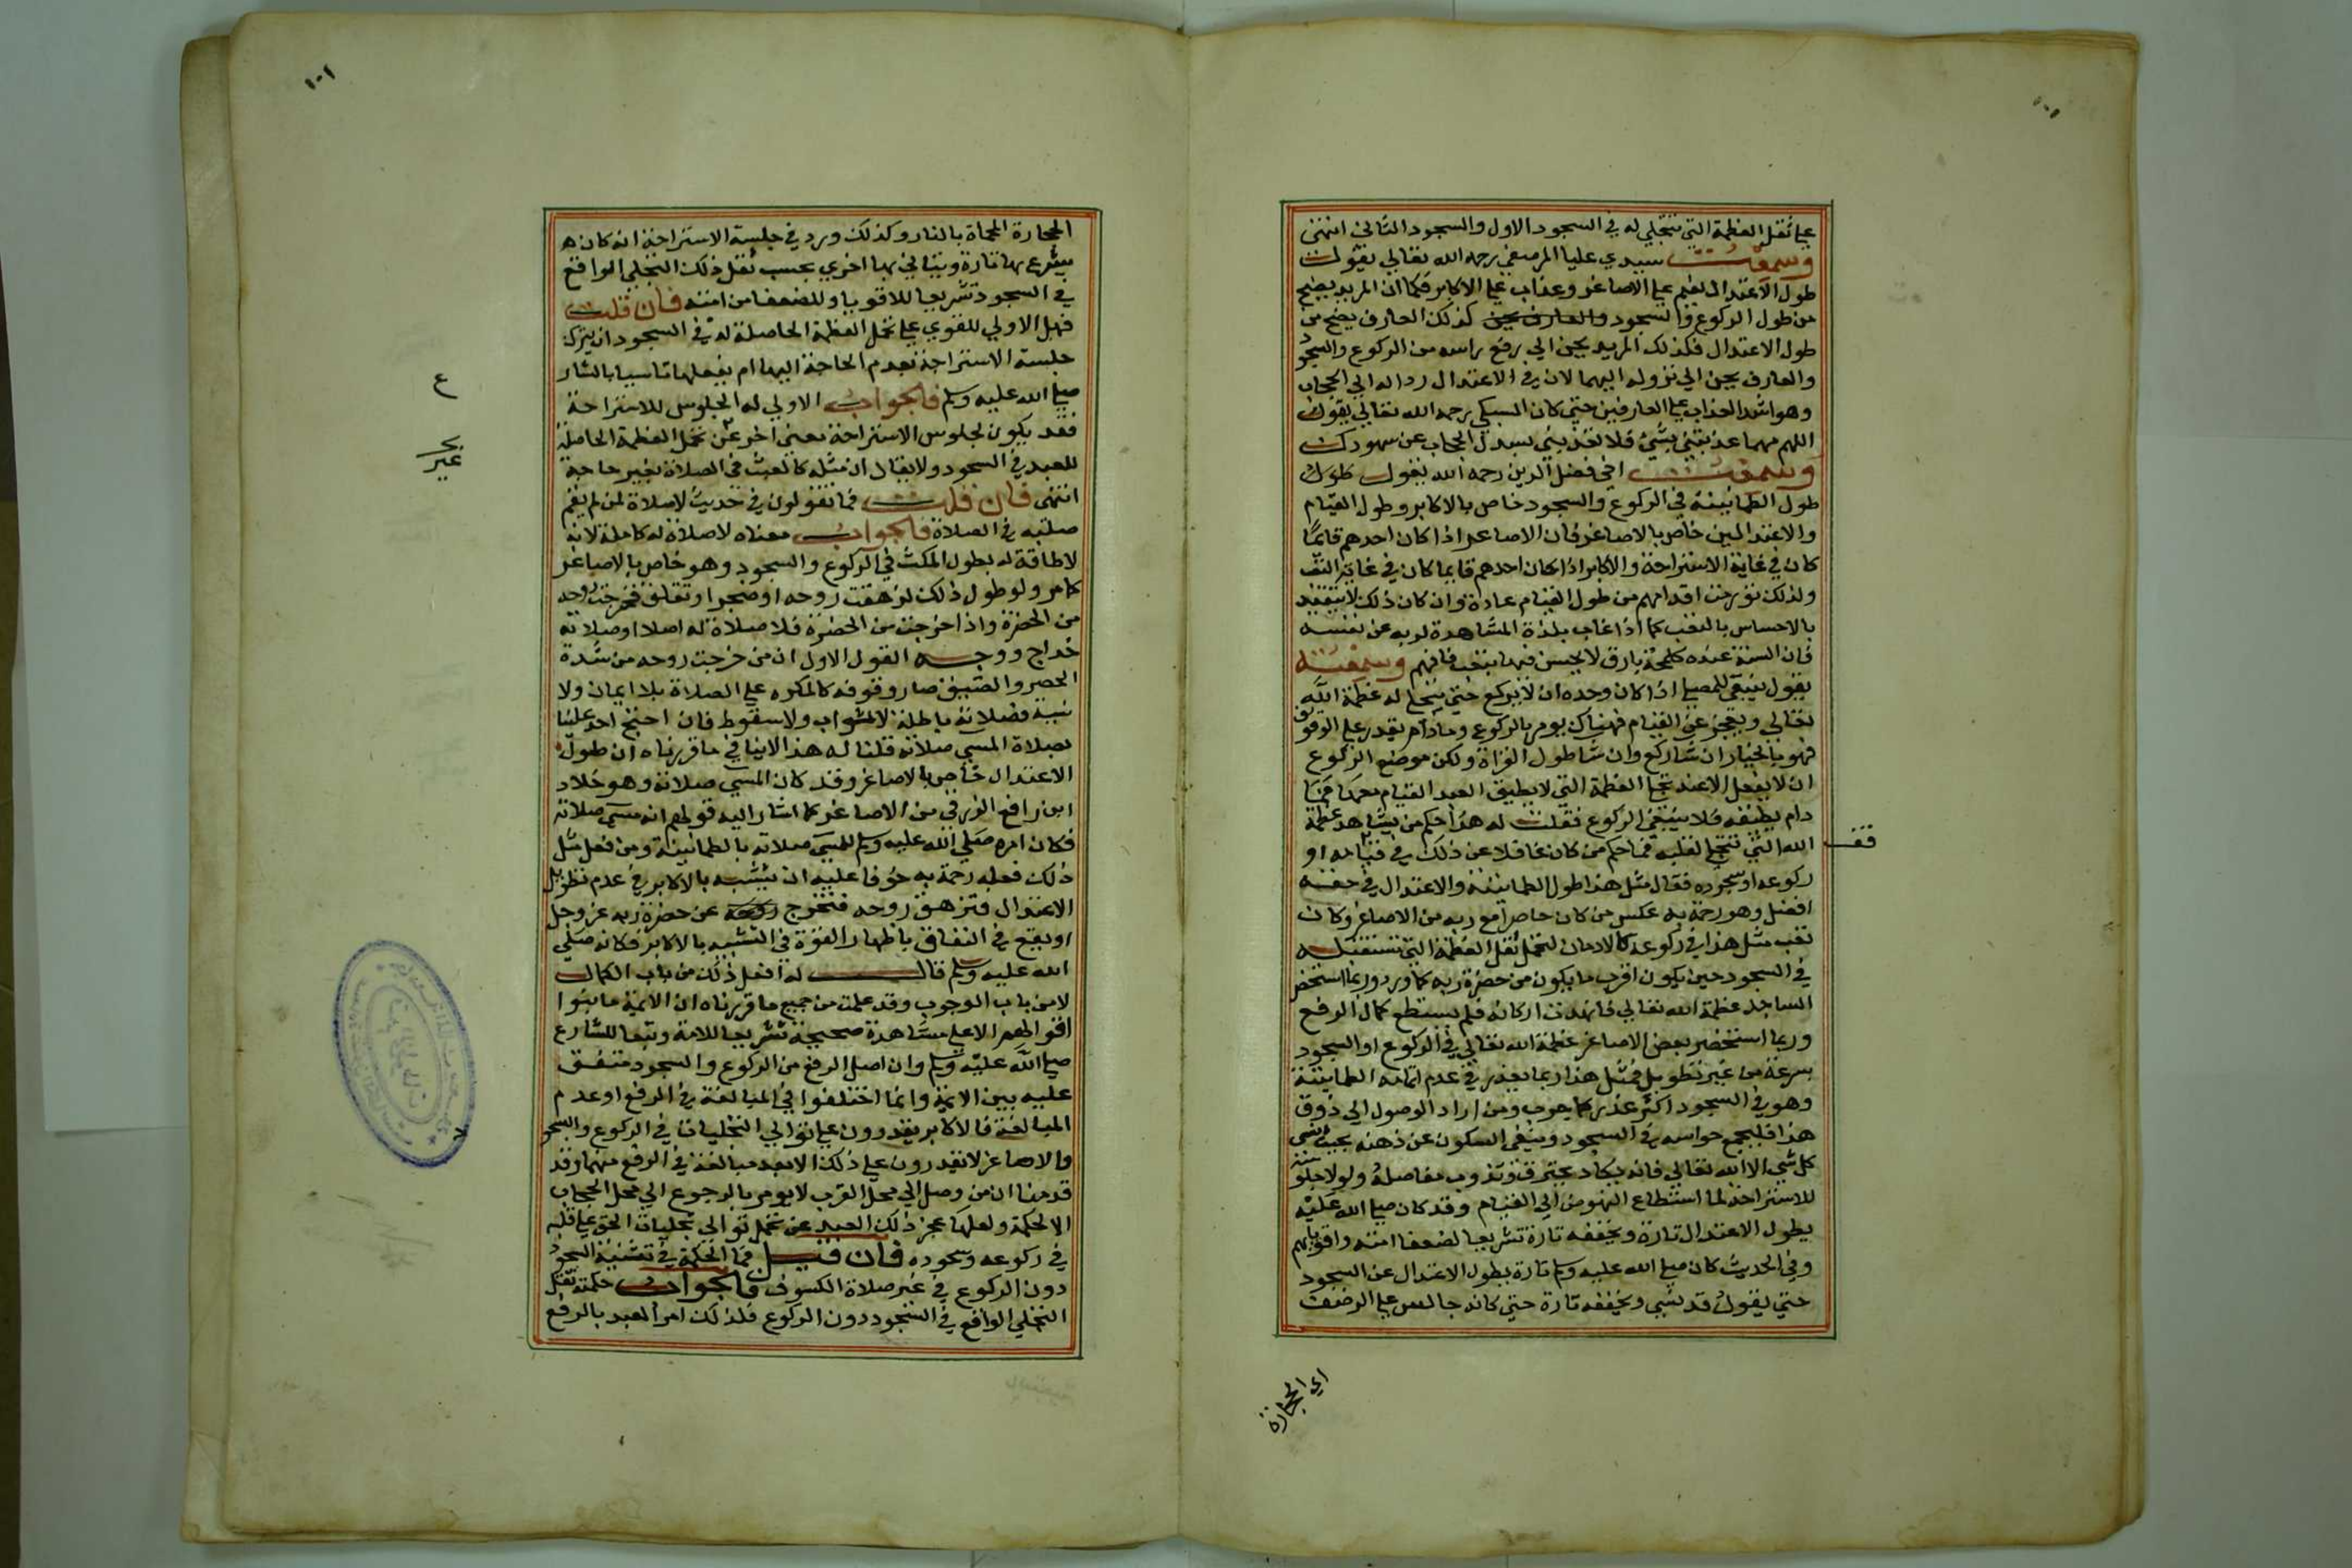 علي ثقل العظمة التي تتجلي له في السجود الاول والسجود الثاني انتهي
وسمعت سيدي عليا المرصفي رحمه الله تعالي يقول
طول الاعتدال نعيم علي الاصاغر وعذاب علي الاكابر فكما ان المريد يضج
من طول الركوع والسجود والعارف يحن كذلك العارف يضج من
طول الاعتدال فكذلك المريد يحن الي رفع راسه من الركوع والسجود
والعارف يحن الي نزوله اليهما لان في الاعتدال رداله الي الحجاب
وهو اشد العذاب علي العارفين حتي كان السبكي رحمه الله تعالي يقول
اللهم مهما عذبتني بشيء فلا تعذبني بسدل الحجاب عن شهودك
وسمعت اخي فضل الدين رحمه الله يقول طول
طول الطمانينة في الركوع والسجود خاص بالاكابر وطول القيام
والاعتدالين خاص بالاصاغر فان الاصاغر اذا كان احدهم قايمًا
كان في غاية الاستراحة والاكابر اذا كان احدهم قايما كان في غاية التعب
ولذلك تورمت اقدامهم من طول القيام عادة وان كان ذلك لا يتقيد
بالاحساس بالتعب كما اذا غاب بلذة المشاهدة لربه عن نفسه
فان السنة عنده كلمحة بارق لا يحس فيها بتعب فافهم وسمعته
يقول ينبغي للمصلي اذا كان وحده ان لا يركع حتي تتجلي له عظمة الله
تعالي ويعجز عن القيام فهناك يومر بالركوع وما دام يقدر علي الوقوف
فهو بالخيار ان شا ركع وان شا طول القراة ولكن موضع الركوع
ان لا يفعل الا عند تجلي العظمة التي لا يطيق العبد القيام معها فما
دام يطيقه فلا ينبغي الركوع فقلت له هذا حكم من يشاهد عظمة
الله التي تتجلي لقلبه فما حكم من كان غافلا عن ذلك في قيامه او
ركوعه او سجوده فقال مثل هذا طول الطمانينة والاعتدال في حقه
افضل وهو رحمة به عكس من كان حاضرا مع ربه من الاصاغر وكان
تعب مثل هذا في ركوعه كالادمان لتحمل ثقل العظمة التي تستقبله
في السجود حين يكون اقرب ما يكون من حضرة ربه كما ورد وربما استحضر
الساجد عظمة الله تعالي فانهدت اركانه فلم يستطع كمال الرفع
وربما استحضر بعض الاصاغر عظمة الله تعالي في الركوع او السجود
بسرعة من غير تطويل فمثل هذا ربما يعذر في عدم اتمامه الطمانينة
وهو في السجود اكثر عذرا كما يعرف ومن اراد الوصول الي ذوق
هذا فليجمع حواسه في السجود وينفي السكون عن ذهنه بحيث ينسي
كل شي الا الله تعالي فانه يكاد يحترق وتذوب مفاصله ولولا جلوسه
للاستراحة لما استطاع النهوض الي القيام وقد كان صلي الله عليه
يطول الاعتدال تارة ويخففه تارة تشريعا لضعفا امته واقويايهم
وفي الحديث كان صلي الله عليه وسلم تارة يطول الاعتدال عن السجود
حتي يقول قد نسي ويخففه تارة حتي كانه جالس علي الرضف
قف
اي الحجارة
١٠١
الحجارة المحماة بالنار وكذلك ورد في جلسة الاستراحة انه كان
يشرع بها تارة ويتاني بها اخري بحسب ثقل ذلك التجلي الواقع
في السجود تشريعا للاقويا وللضعفا من امته فان قلت
فهل الاولي للقوي علي تحمل العظمة الحاصلة له في السجود ان يترك
جلسة الاستراحة لعدم الحاجة اليها ام يفعلها تاسيا بالشارع
صلي الله عليه وسلم فالجواب الاولي له الجلوس للاستراحة
فقد يكون لجلوس الاستراحة معني اخر غير تحمل العظمة الحاصلة
للعبد في السجود ولا يقال ان مثله كالعبث في الصلاة بغير حاجة
انتهي فان قلت فما تقولون في حديث لا صلاة لمن لم يقم
صلبه في الصلاة فالجواب معناه لا صلاة له كاملة لانه
لا طاقة له بطول المكث في الركوع والسجود وهو خاص بالاصاغر
كما مر ولو طول ذلك لزهقت روحه او ضجر او تقلق فخرجت روحه
من الحضرة واذا خرجت من الحضرة فلا صلاة له اصلا او صلاته
خداج ووجه القول الاول ان من خرجت روحه من شدة
الحصر والضيق صار وقوفه كالمكره علي الصلاة بلا ايمان ولا
نية فصلاته باطلة لا لثواب ولا سقوط فان احتج احد علينا
بصلاة المسي صلاته قلنا له هذا لا ينافي ما قررناه ان طول
الاعتدال خاص بالاصاغر وقد كان المسي صلاته وهو خلاد
ابن رافع الزرقي من الاصاغر كما اشار اليه قولهم انه مسي صلاته
فكان امره صلي الله عليه وسلم للمسي صلاته بالطمانينة ومن فعل مثل
ذلك فعله رحمة به خوفا عليه ان يتشبه بالاكابر في عدم تطويل
الاعتدال فتزهق روحه فتخرج روحه عن حضرة ربه عز وجل
او يقع في النفاق باظهار القوة في التشبه بالاكابر فكانه صلي
الله عليه وسلم قال له افعل ذلك من باب الكمال
لا من باب الوجوب وقد علمت من جميع ما قررناه ان الايمة ما بنوا
اقوالهم الا علي مشاهدة صحيحة تشريعا للامة وتبعا للشارع
صلي الله عليه وسلم وان اصل الرفع من الركوع والسجود متفق
عليه بين الايمة وانما اختلفوا في المبالغة في الرفع او عدم
المبالغة فالاكابر يقدرون علي توالي التجليات في الركوع والسجود
والاصاغر لا يقدرون علي ذلك الا بعد مبالغة في الرفع منهما وقد
قدمنا ان من وصل الي محل القرب لا يومر بالرجوع الي محل الحجاب
الا لحكمة ولعلها عجز ذلك العبد عن تحمل توالي تجليات الحق علي قلبه
في ركوعه وسجوده فان قيل فما الحكمة في تثنية السجود
دون الركوع في غير صلاة الكسوف فالجواب حكمته ثقل
التجلي الواقع في السجود دون الركوع فلذلك امر العبد بالرفع
ع
غير